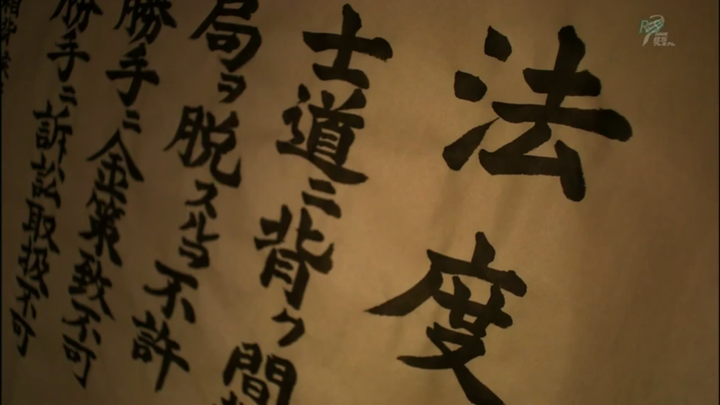 法度
士道ニ背ク間
局ヲ脱スル不許
勝手ニ金策致不可
勝手ニ訴訟取扱不可